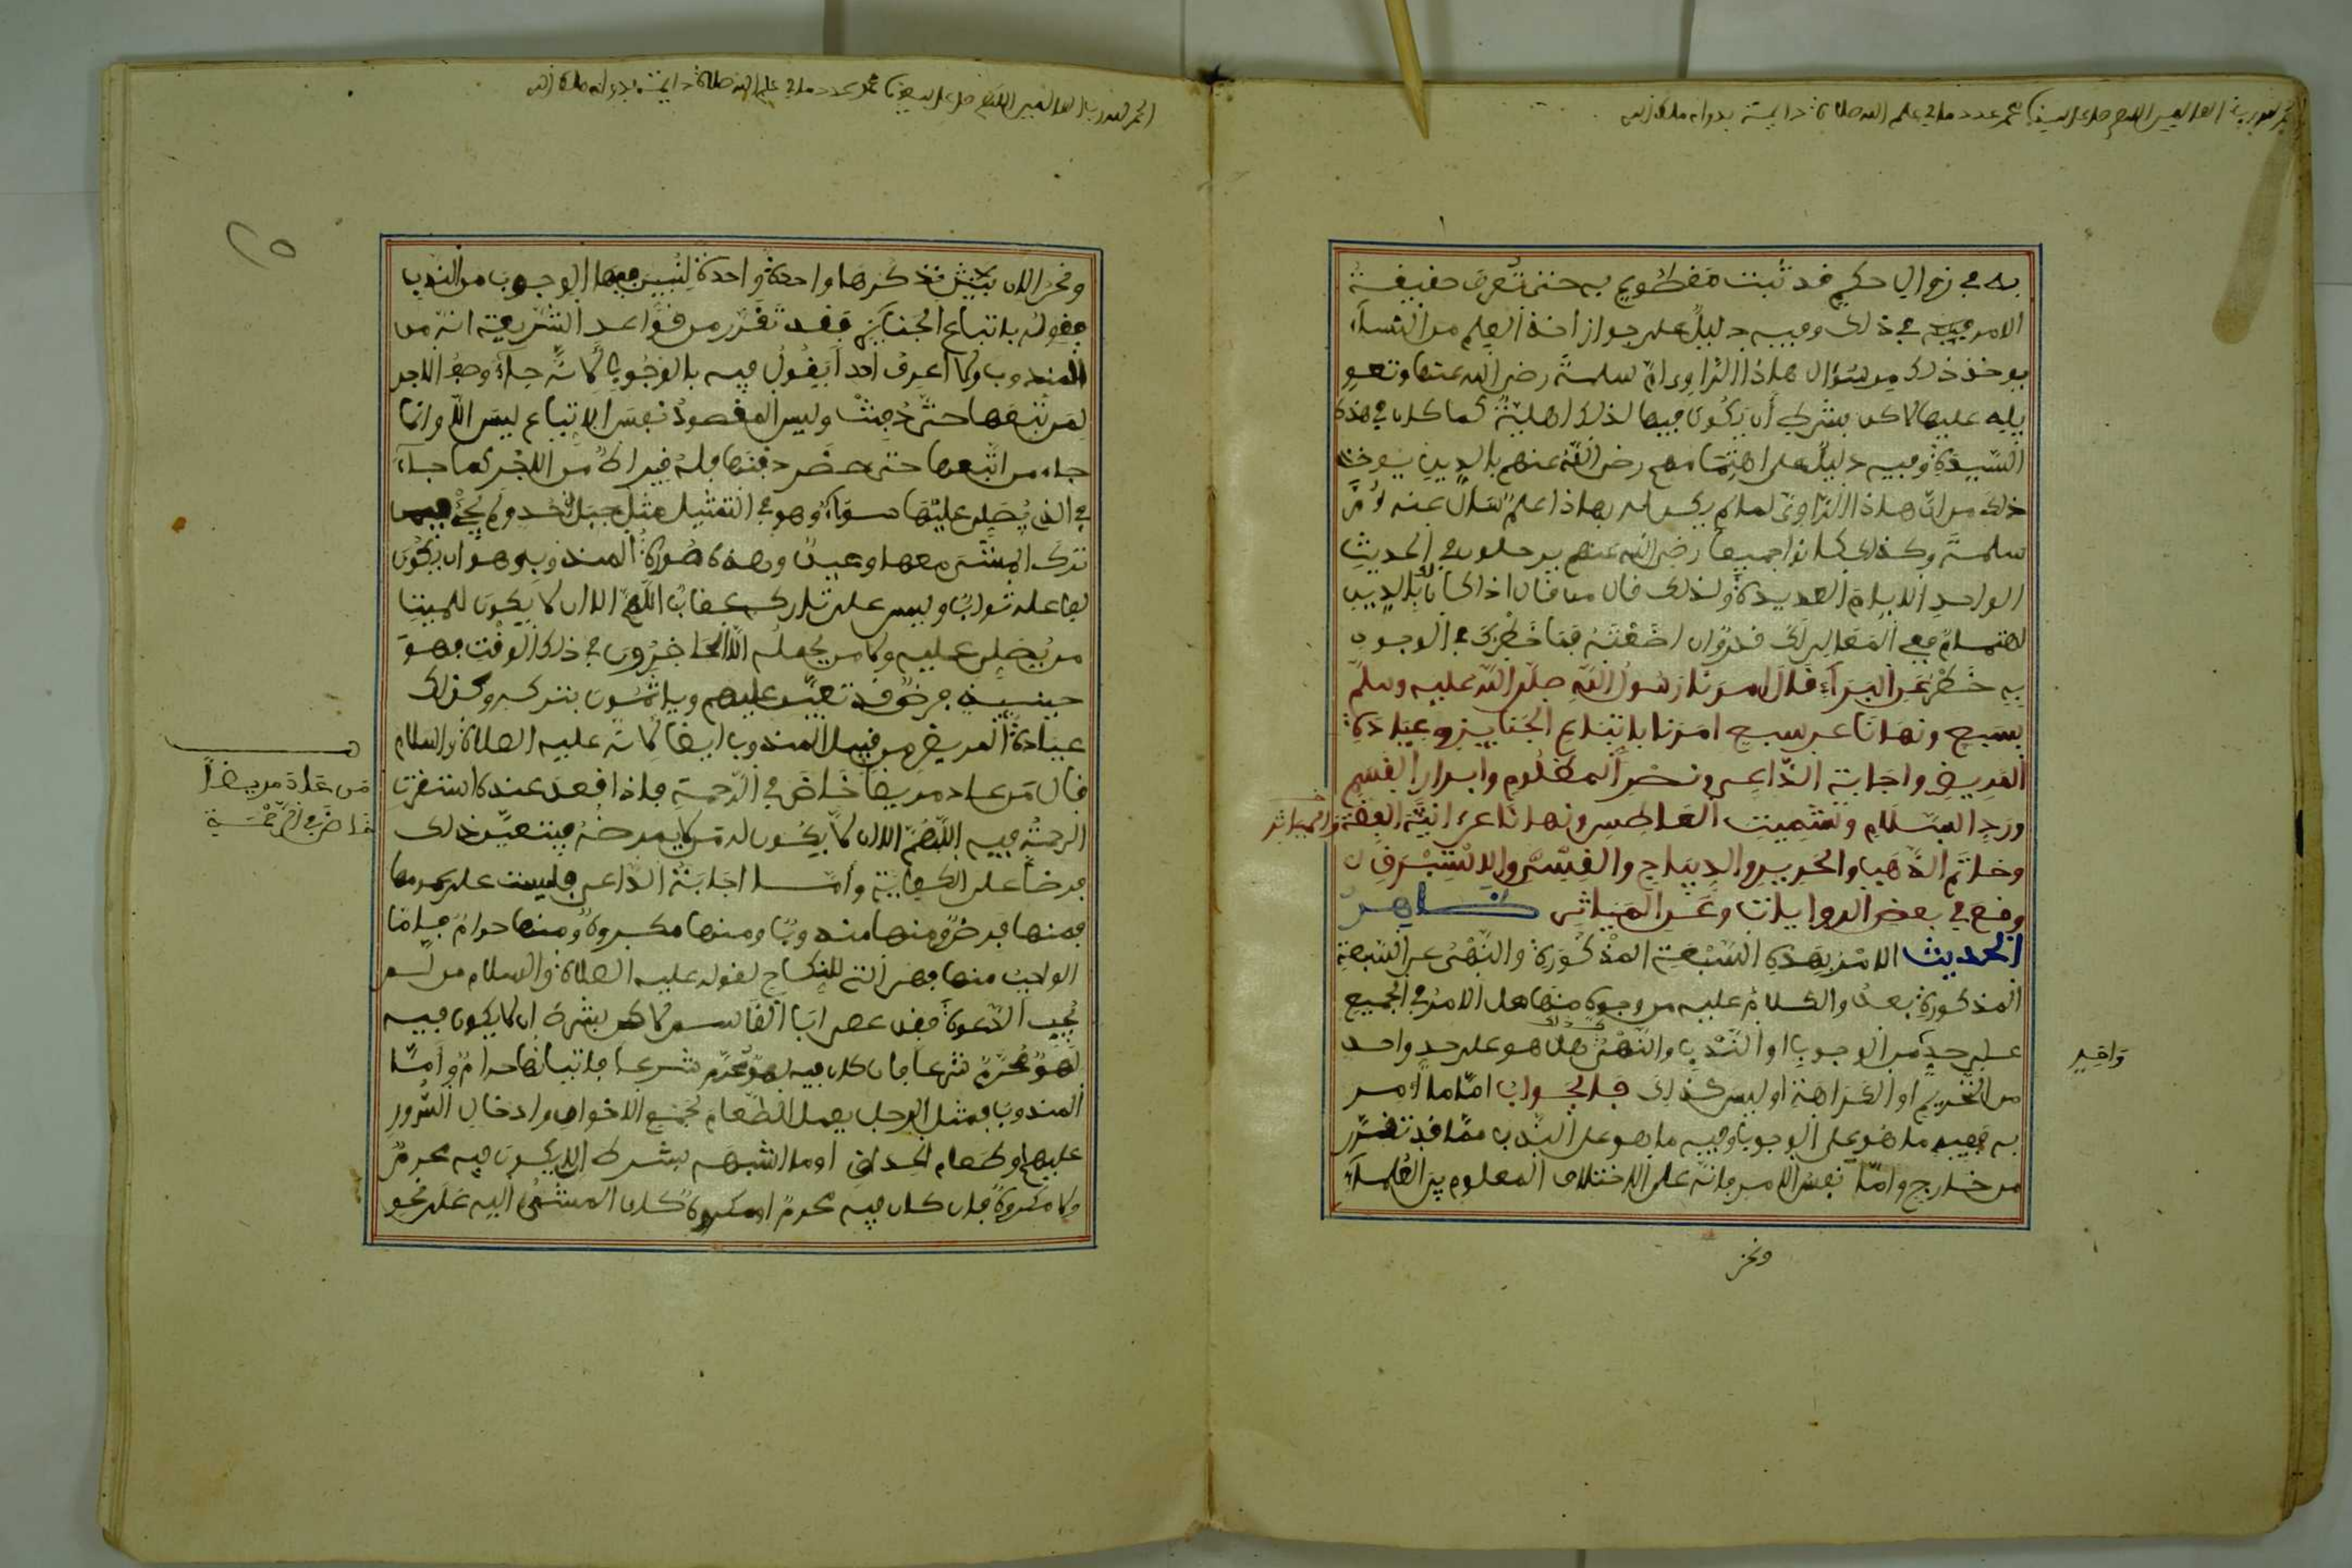 الحمد لله رب العالمين اللهم صل على سيدنا محمد عدد ما في علم الله صلاة دايمة بدوام ملك الله
به في زوال حكم قد ثبت مقطوع به حتى تعرف حقيقة
الامر فيه في ذلك وفيه دليل على جواز اخذ العلم من النساء
يوخذ ذلك من سؤال هاذا الراوي ام سلمة رضي الله عنها وتعو
يله عليها لاكن بشرط أن يكون فيها لذلك اهلية كما كان في هذه
السيدة وفيه دليل على اهتمامهم رضي الله عنهم بالدين يوخذ
ذلك من ان هاذا الراوي لما لم يكن له بهاذا علم سال عنه أم
سلمة وكذلك كانوا جميعا رضي الله عنهم يرحلون في الحديث
الواحد الايام العديدة ولذلك قال من قال اذا كان بالدين
اهتمام فمعي المعالي لك قدر وان اضعته فما خطرك في الوجود
به خطر عن البراء قال امرنا رسول الله صلى الله عليه وسلم
بسبع ونهانا عن سبع امرنا باتباع الجنايز وعيادة
المريض واجابة الداعي ونصر المظلوم وابرار القسم
ورد السلام وتشميت العاطس ونهانا عن انية الفضة
والمياثر
وخاتم الذهب والحرير والديباج والقسي والاستبرق
وقع في بعض الروايات وعن المياثر ظاهر
الحديث الامر بهذه السبعة المذكورة والنهي عن السبعة
المذكورة بعد والكلام عليه من وجوه منها هل الامر في الجميع
على حد من الوجوب او الندب والنهي كذلك هل هو على حد واحد
واحد
من التحريم او الكراهة او ليس كذلك فالجواب اما ما امر
به ففيه ما هو على الوجوب وفيه ما هو على الندب مما قد تقرر
من خارج واما نفس الامر فانه على الاختلاف المعلوم بين العلماء
ونحن
الحمد لله رب العالمين اللهم صل على سيدنا محمد عدد ما في علم الله صلاة دايمة بدوام ملك الله
٢٥
ونحن الان نذكرها واحدة واحدة لنبين فيها الوجوب من الندب
فقوله باتباع الجنايز فقد تقرر من قواعد الشريعة انه من
المندوب ولا اعرف احدا يقول فيه بالوجوب لانه جاء وصف الاجر
لمن تبعها حتى دفنت وليس المقصود نفس الاتباع ليس الا وانما
جاء من اتبعها حتى حضر دفنها فله قيراط من الاجر كما جاء
في الذي يصلي عليها سواء وهو في التمثيل مثل جبل أحد ولم يجئ فيمن
ترك المشي معها وعيد وهذه صورة المندوب وهو ان يكون
لفاعله ثواب وليس على تاركه عقاب اللهم الا ان لا يكون للميت
من يصلي عليه ولا من يحمله الا الحاضرون في ذلك الوقت فهو
حينيذ فرض قد تعين عليهم وياثمون بتركه وكذلك
عيادة المريض من قبيل المندوب ايضا لانه عليه الصلاة والسلام
قال من عاد مريضا خاض في الرحمة فاذا قعد عنده استقرت
من عاد مريضاً
خاض في الرحمة
الرحمة فيه اللهم الا ان لا يكون له من يمرضه فيتعين ذلك
فرضا على الكفاية وأما اجابة الداعي فليست على عمومها
فمنها فرض ومنها مندوب ومنها مكروه ومنها حرام فاما
الواجب منها فهي التي للنكاح لقوله عليه الصلاة والسلام من لم
يجب الدعوة فقد عصى ابا القاسم لاكن بشرط ان لا يكون فيه
لهو محرم شرعا فان كان فيه لهو محرم شرعا فاتيانها حرام وأما
المندوب فمثل الرجل يعمل الطعام لجمع الاخوان وادخال السرور
عليهم او طعام الحذاق او ما اشبهه بشرط الا يكون فيه محرم
ولا مكروه فان كان فيه محرم او مكروه كان المشي اليه على نحو